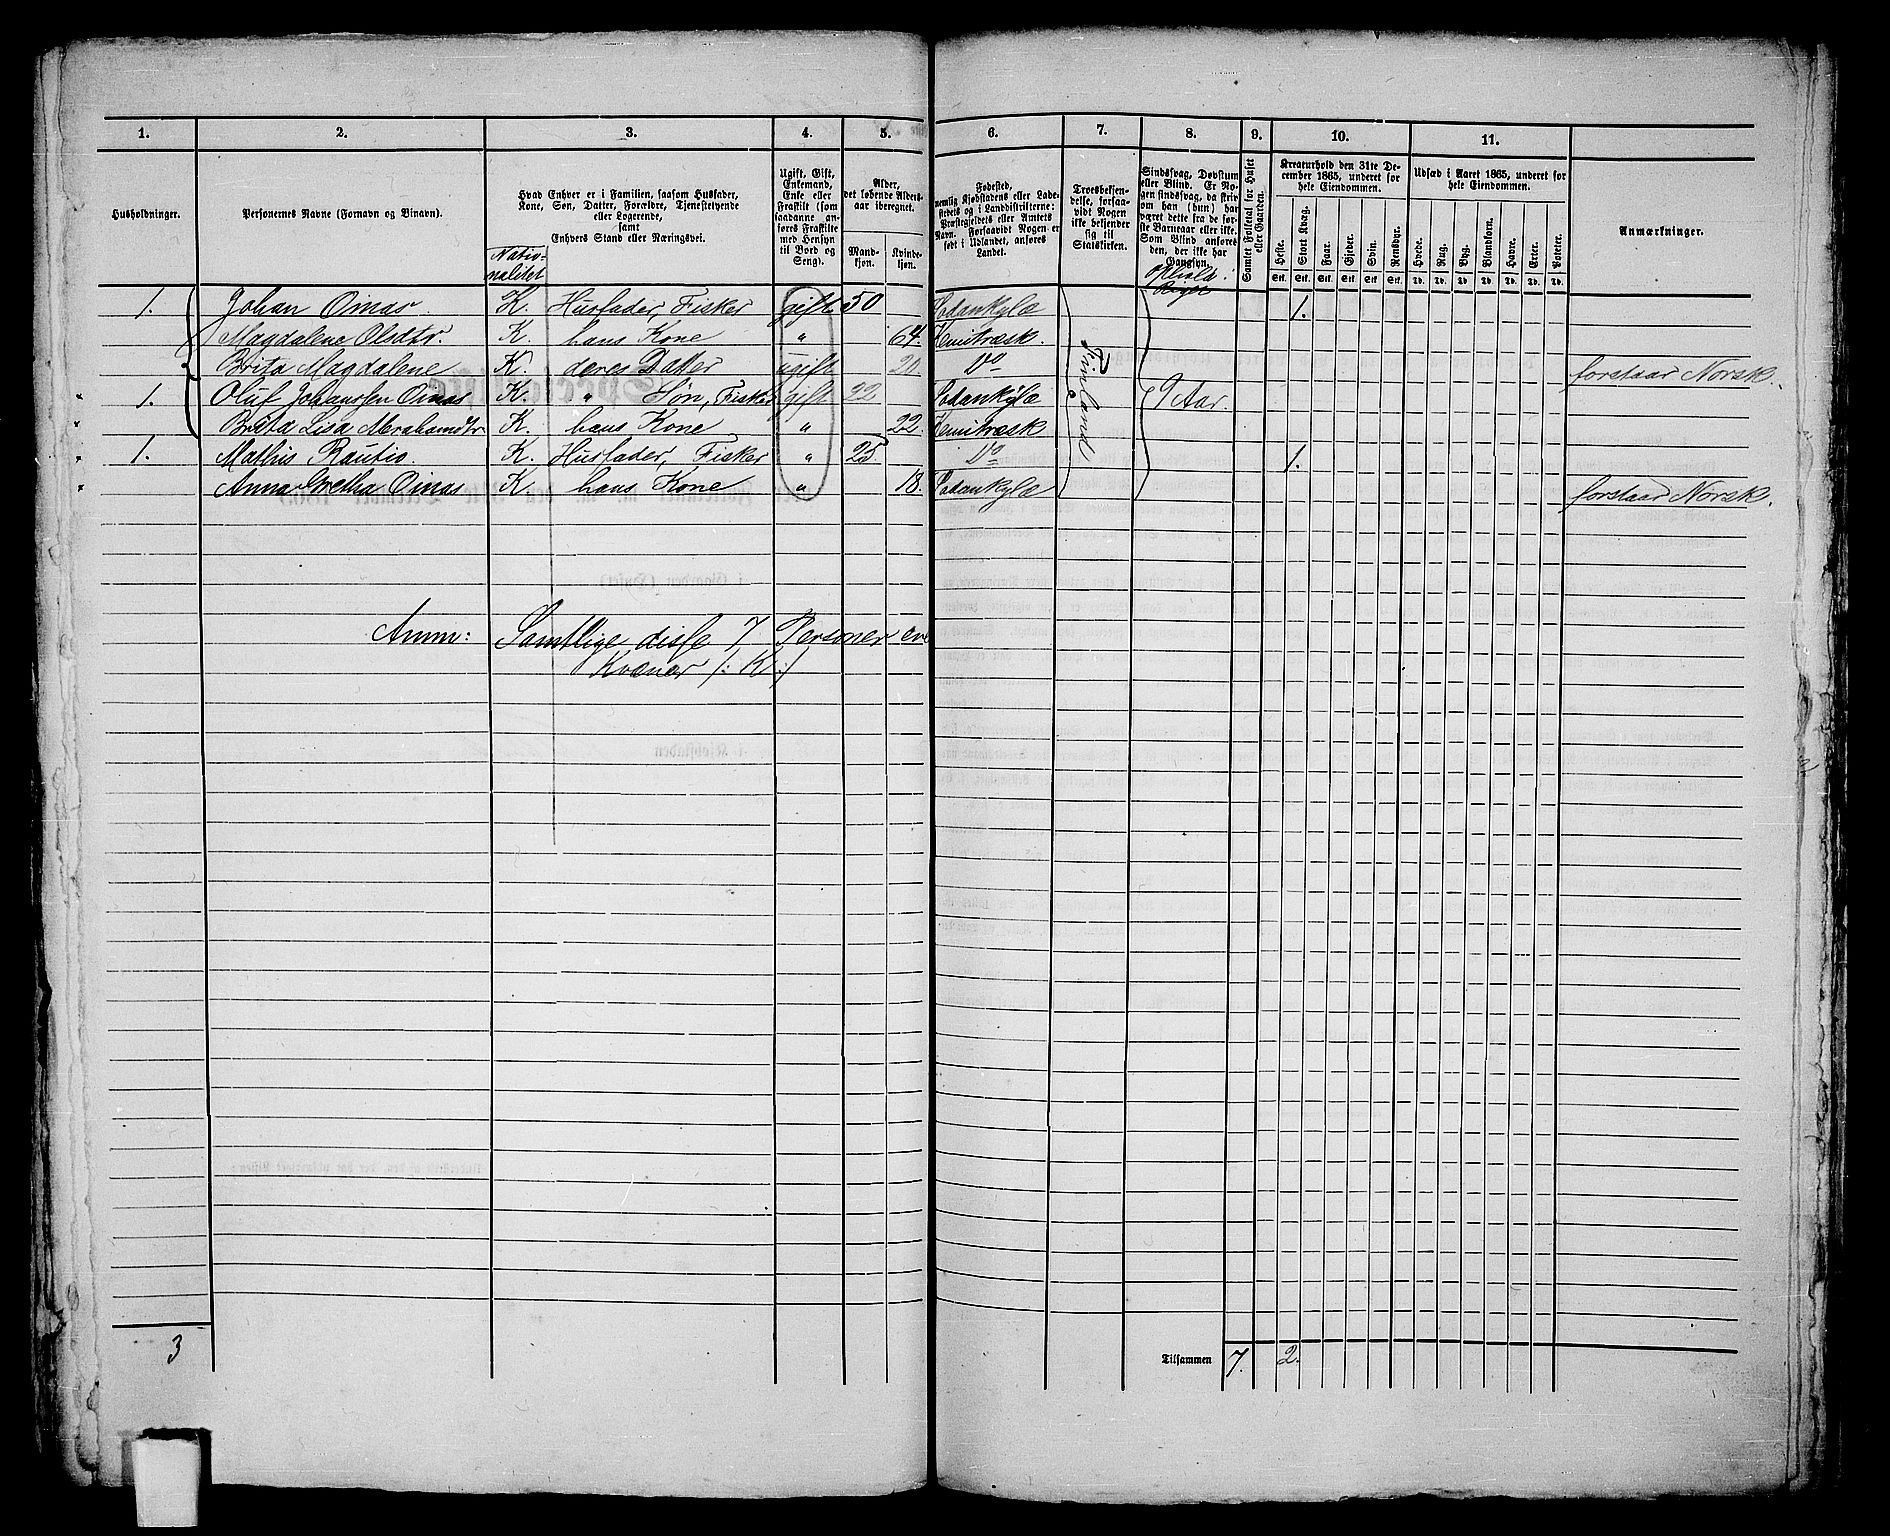 1. 2. 3. 4. 5. 6. 7. 8. 9. 10. 11.
Husholdninger.
Personernes Navne (Fornavn og Binavn).
Hvad Enhver er i Familien, saasom Husfader, Kone, Søn, Datter, Forældre, Tjenestetyende eller Logerende, samt Enhvers Stand eller Næringsvei.
Nationalitet
Ugift, Gift, Enkemand, Enke eller Fraskilt (som saadanne anføres Fraskilte med Hensyn til Bord og Seng).
Alder, det løbende Aldersaar iberegnet.
Mandkjøn. Kvindekjøn.
Fødested, nemlig Kjøbstadens eller Ladestedets og i Landdistrikterne: Præstegjeldets eller Amtets Navn. Forsaavidt Nogen er født i Udlandet, anføres Landet.
Troesbekjendelse, forsaavidt Nogen ikke bekjender sig til Statskirken.
Sindssvag, Døvstum eller Blind. Er Nogen sindssvag, da skrives om han (hun) har været dette fra de første Barneaar eller ikke. Som Blind anføres den, der ikke har Gangsyn.
Ophold i
Samlet Folketal for Huset eller Gaarden.
Kreaturhold den 31te December 1865, underet for hele Eiendommen.
Heste. Stort Kvæg. Faar. Gjeder. Svin. Rensdyr.
Stk. Stk. Stk. Stk. Stk. Stk.
Udsæd i Aaret 1865, underet for hele Eiendommen.
Hvede. Rug. Byg. Blandkorn. Havre. Erter. Poteter.
Td. Td. Td. Td. Td. Td. Td.
Anmærkninger.
1. Johan Oinas K. Husfader, Fisker gift 50 Sodankylæ 1.
Magdalene Olsdtr. K. hans Kone " 64. Kemitræsk.
Brita Magdalene K. deres Datter ugift 20. Do forstaar Norsk.
1. Oluf Johanssen Oinas K. " Søn, Fisker gift 22 Sodankylæ 9 Aar.
Brita Lisa Abrahamdtr K. hans Kone " 22. Kemitræsk
1. Mathis Rautio. K. Husfader, Fisker " 25. Do 1.
Anna Gretha Oinas K hans Kone " 18. Sodankylæ forstaar Norsk.
Finland
Anm: Samtlige disse 7 Personer ere
Kvæner /: K :/
3
Tilsammen 7. 2.